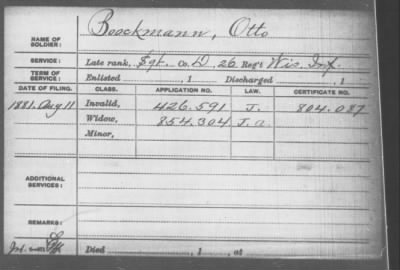 NAME OF SOLDIER: Boeckmann, Otto
SERVICE: Late rank, Sgt. Co. D, 26 Reg't Wis. Inf.
TERM OF SERVICE: Enlisted , 1 Discharged , 1
DATE OF FILING. CLASS. APPLICATION NO. LAW. CERTIFICATE NO.
1881. Aug 11 Invalid, 426.591 J. 804.087
Widow, 854.304 J. a
Minor,
ADDITIONAL SERVICES:
REMARKS:
Died , 1 , at